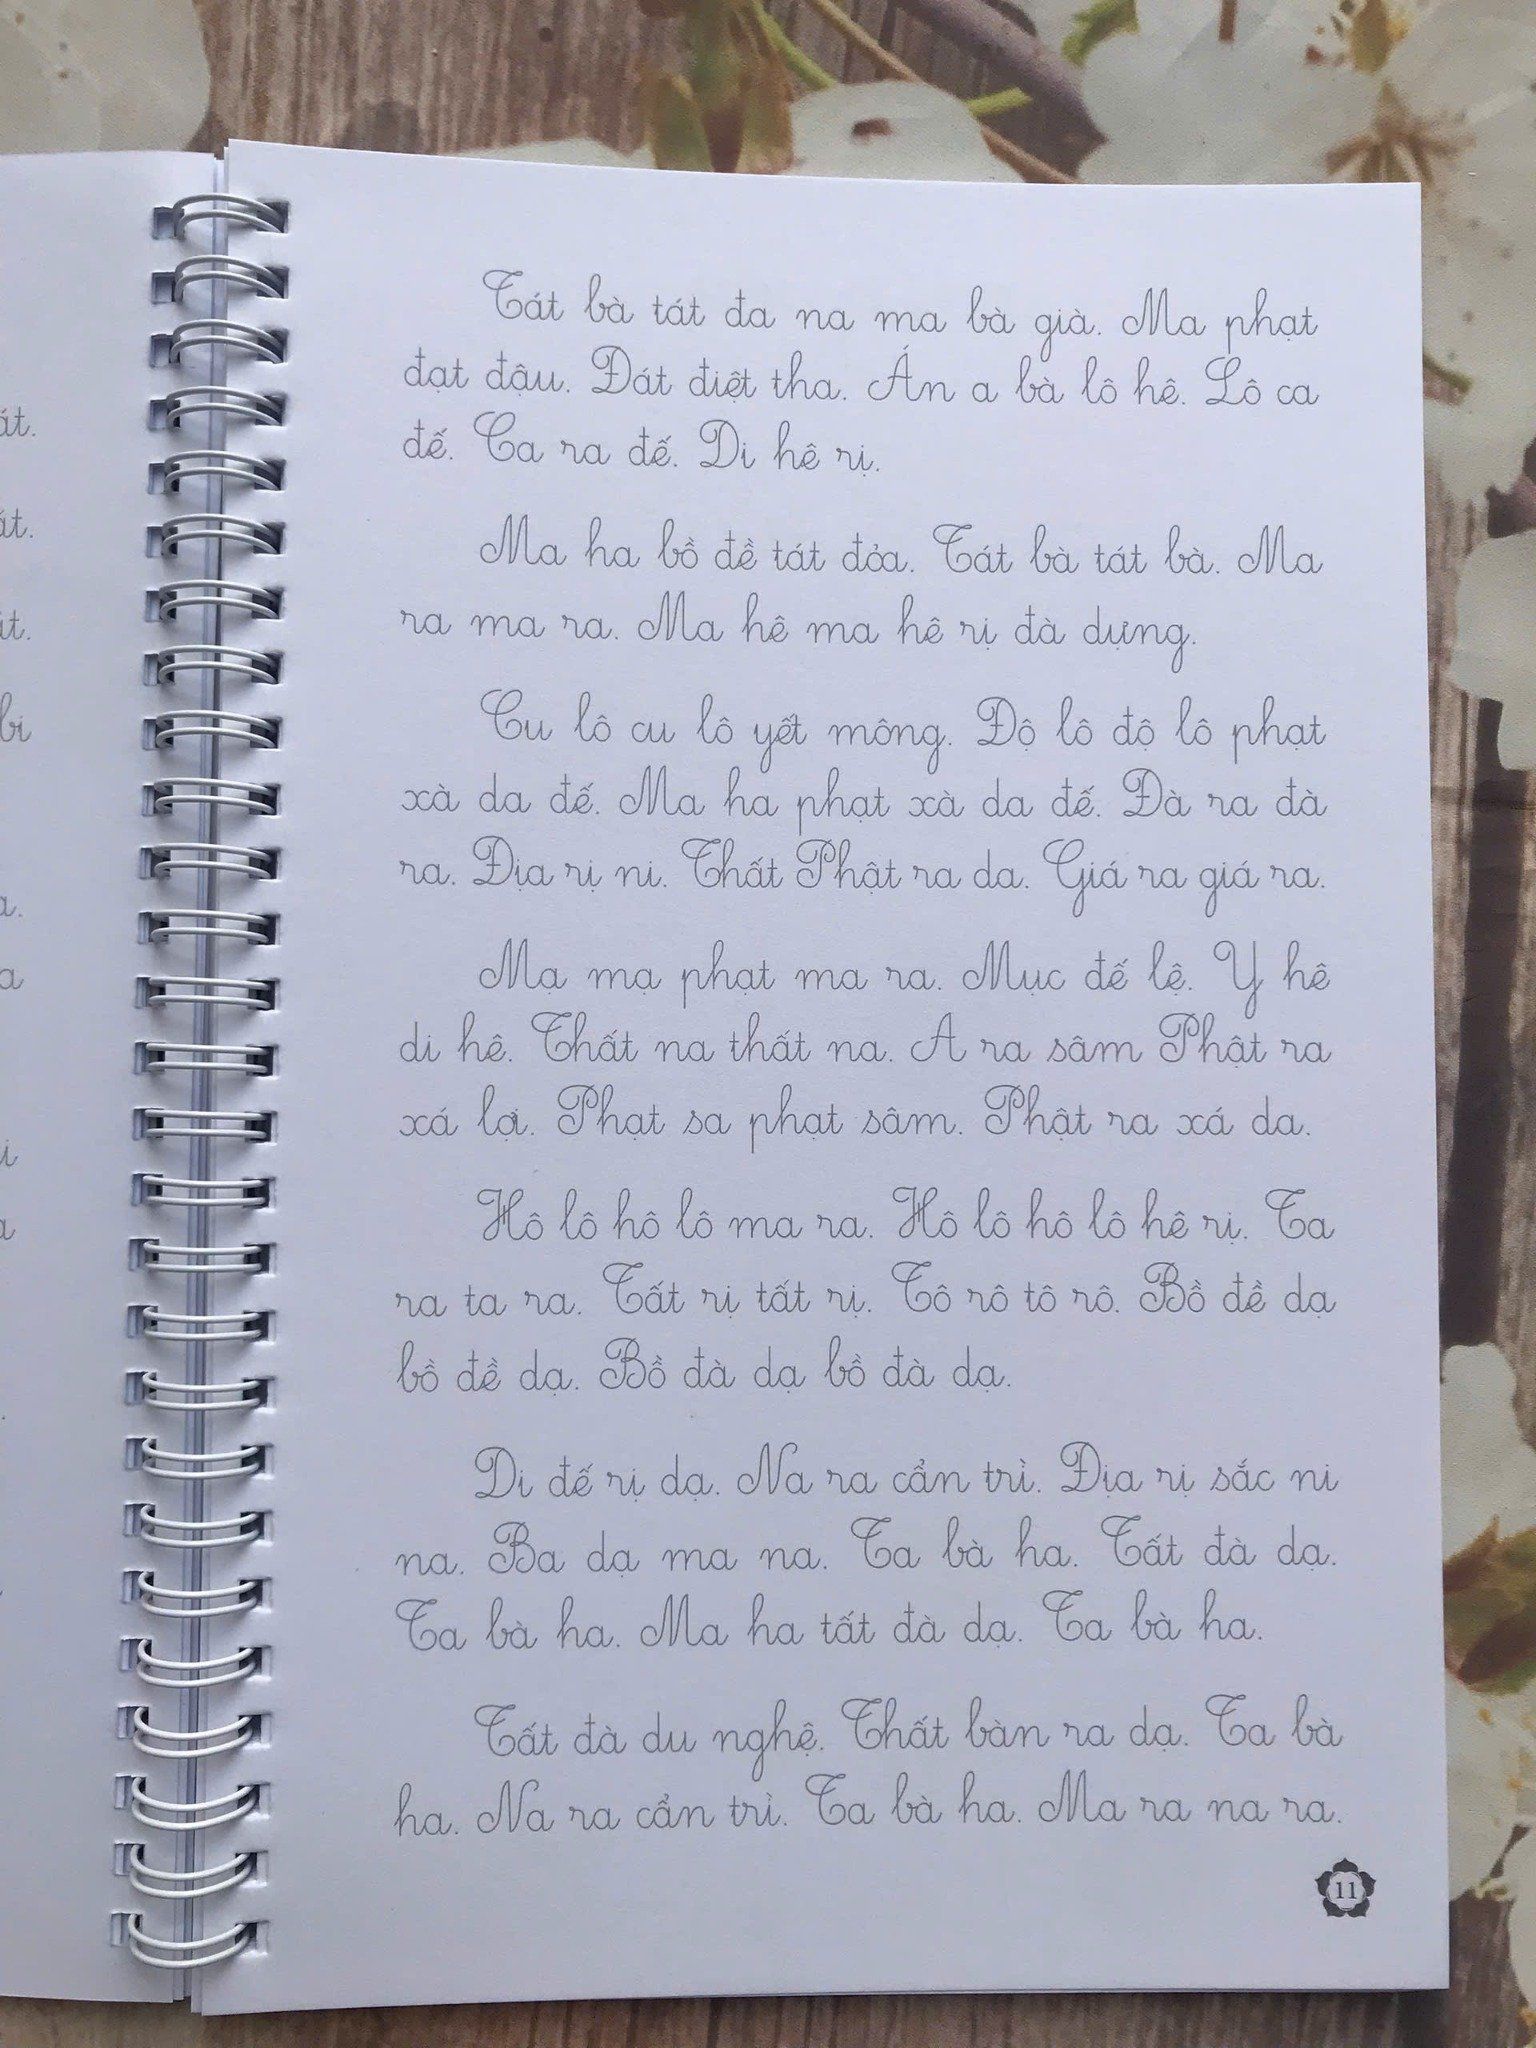 Tát bà tát đa na ma bà già. Ma phạt
đạt đậu. Đát điệt tha. Án a bà lô hê. Lô ca
đế. Ca ra đế. Di hê rị.
Ma ha bồ đề tát đỏa. Tát bà tát bà. Ma
ra ma ra. Ma hê ma hê rị đà dựng.
Cu lô cu lô yết mông. Độ lô độ lô phạt
xà da đế. Ma ha phạt xà da đế. Đà ra đà
ra. Địa rị ni. Thất Phật ra da. Giá ra giá ra.
Mạ mạ phạt ma ra. Mục đế lệ. Y hê
di hê. Thất na thất na. A ra sâm Phật ra
xá lợi. Phạt sa phạt sâm. Phật ra xá da.
Hô lô hô lô ma ra. Hô lô hô lô hê rị. Ta
ra ta ra. Tất rị tất rị. Tô rô tô rô. Bồ đề dạ
bồ đề dạ. Bồ đà dạ bồ đà dạ.
Di đế rị dạ. Na ra cẩn trì. Địa rị sắc ni
na. Ba dạ ma na. Ta bà ha. Tất đà dạ.
Ta bà ha. Ma ha tất đà dạ. Ta bà ha.
Tất đà du nghệ. Thất bàn ra dạ. Ta bà
ha. Na ra cẩn trì. Ta bà ha. Ma ra na ra.
11
át.
át.
át.
bi
a.
a
i
a